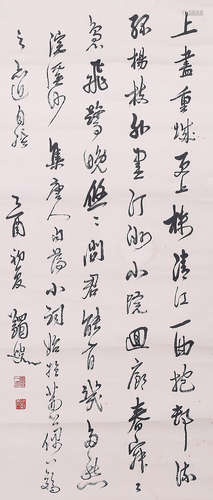 上盡重城更上樓清江一曲抱邨流
綠楊枝外盡汀洲小院迴廊春寂〻
鳧飛鷺晚悠〻問君能有幾多愁
浣溪沙 集唐人句為小詞始於荊公
之 自 乙酉初夏